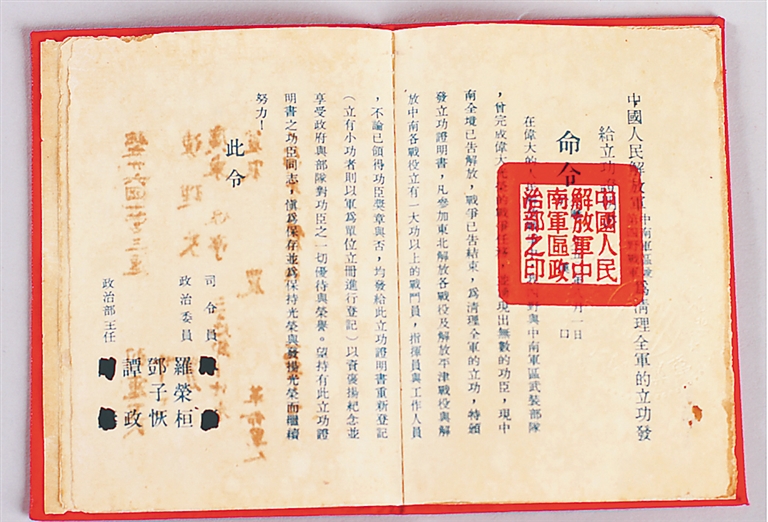 中國人民解放軍 中南軍區 為清理全軍的立功發
給立功
命令
月一日
在偉大的人 與中南軍區武裝部隊
，曾完成偉大光榮的戰爭任務， 現出無數的功臣，現中
南全境已告解放，戰爭已告結束，為清理全軍的立功，特頒
發立功證明書，凡參加東北解放各戰役及解放平津戰役與解
放中南各戰役立有一大功以上的戰鬥員，指揮員與工作人員
，不論已領得功臣獎章與否，均發給此立功證明書重新登記
（立有小功者則以軍為單位立冊進行登記）以資褒揚紀念並
享受政府與部隊對功臣之一切優待與榮譽。望持有此立功證
明書之功臣同志，慎為保存並為保持光榮與發揚光榮而繼續
努力！
此令
司令員
政治委員 羅榮桓
鄧子恢
政治部主任 譚政
中國人民
解放軍中
南軍區政
治部之印